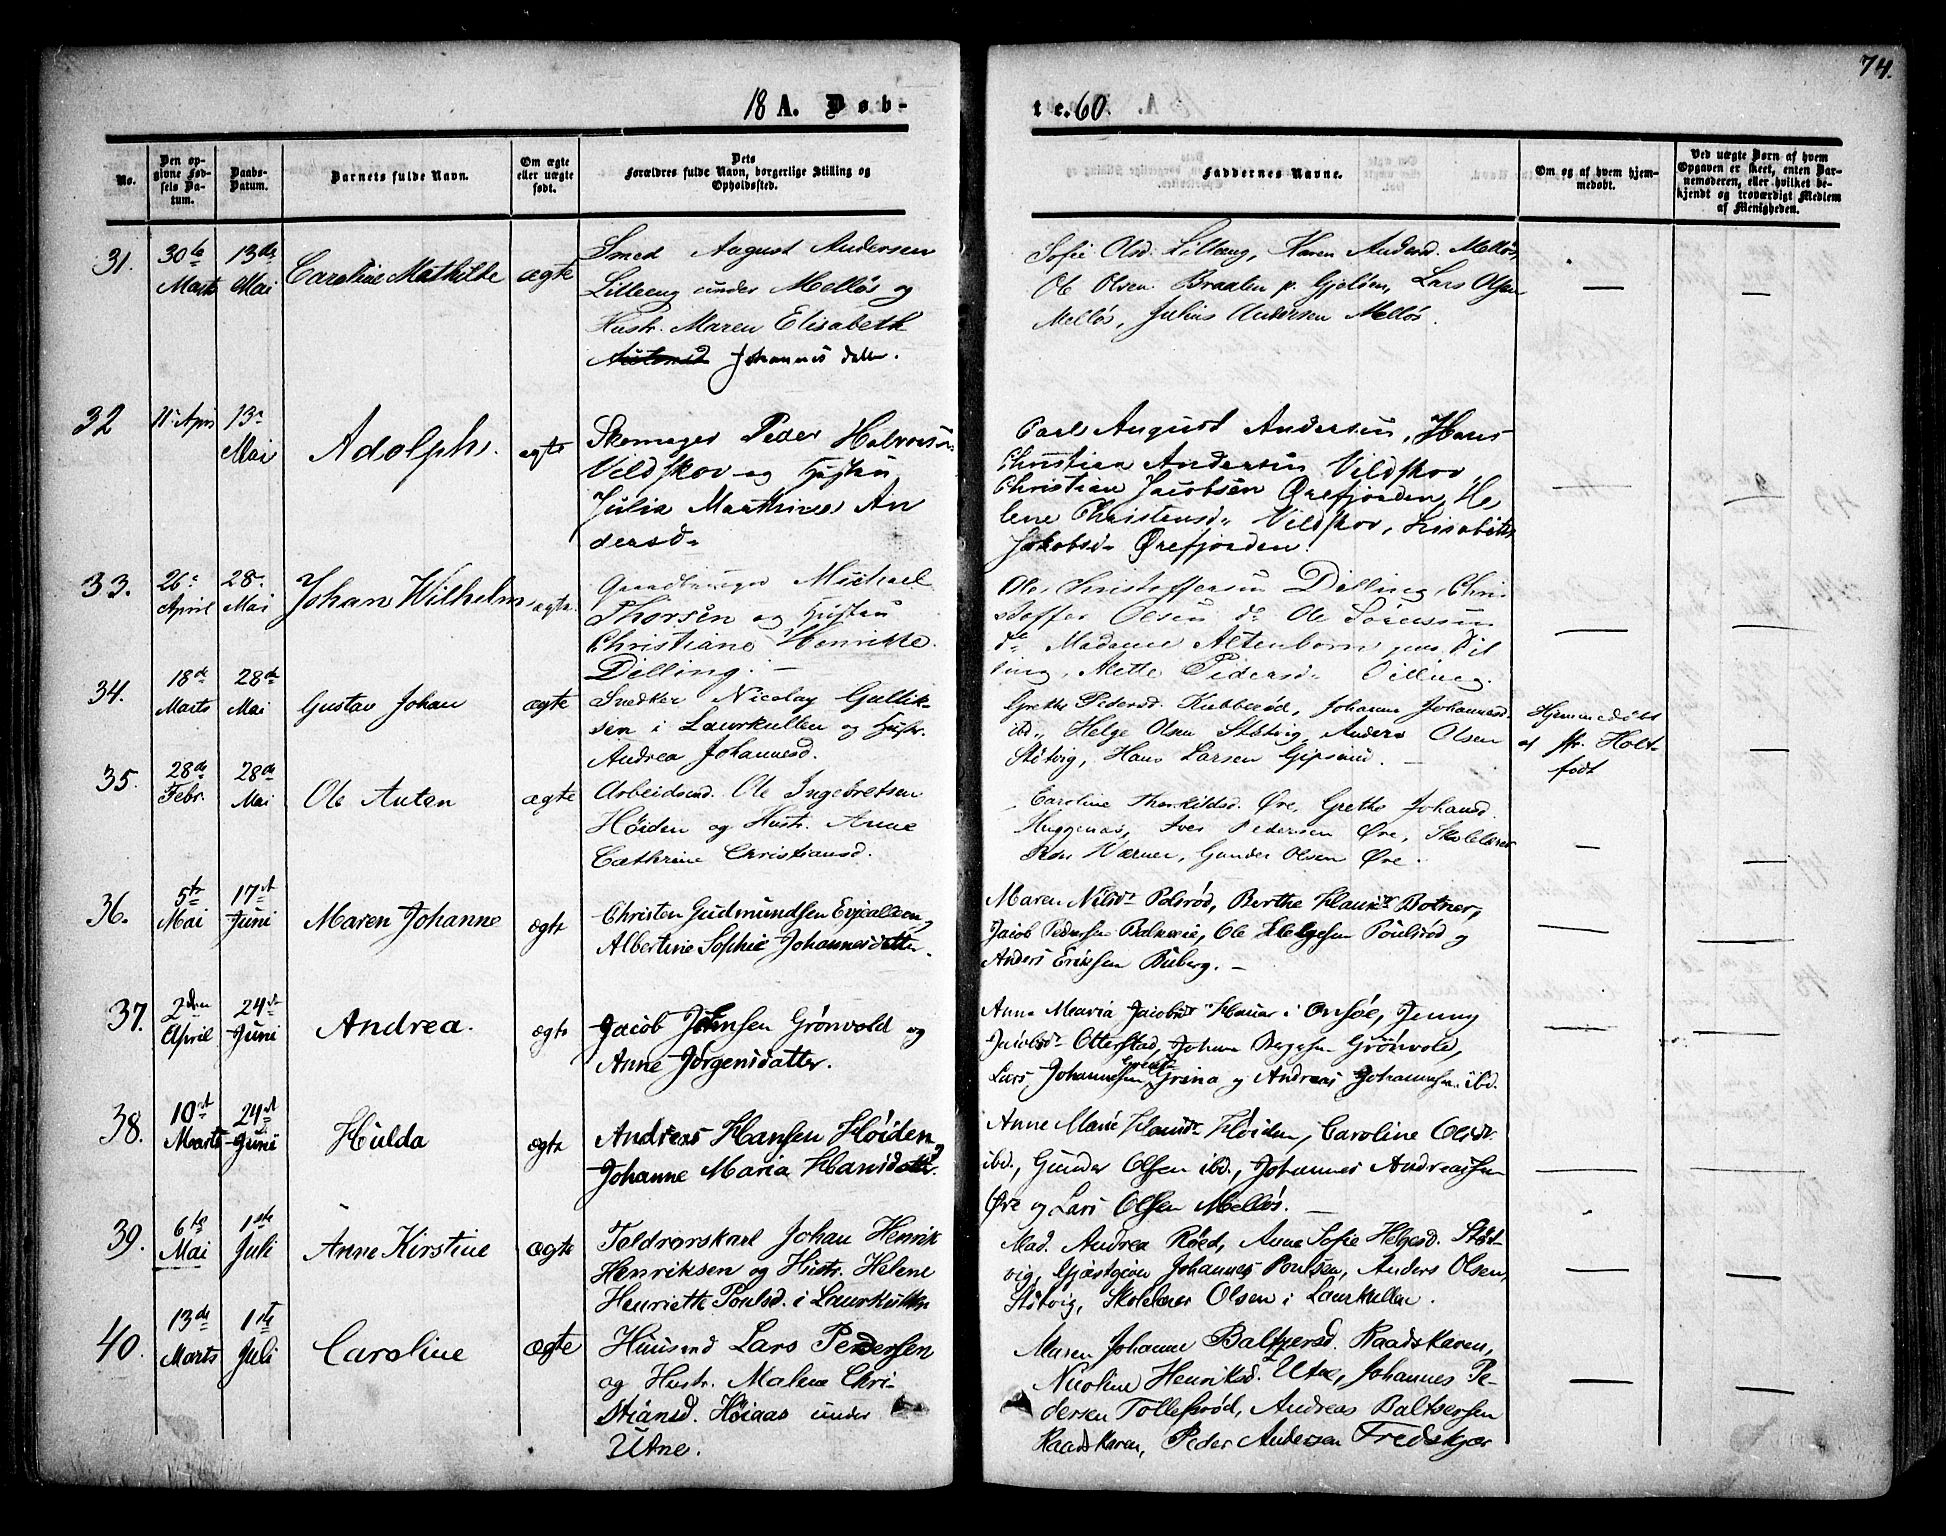 74.
18 A. Døb-
te. 60.
No.
Den opgivne Fødsels Datum.
Daabs-Datum.
Barnets fulde Navn.
Om ægte eller uægte født.
Dets Forældres fulde Navn, borgerlige Stilling og Opholdssted.
Faddernes Navne.
Om og af hvem hjemmedøbt.
Ved uægte Børn af hvem Opgaven er skeet, enten Barnemoderen, eller hvilket bekjendt og troværdigt Medlem af Menigheden.
31.
30te Marts
13de Mai
Caroline Mathilde
ægte
Smed August Andersen
Lilleeng under Melløs og
Hustr. Maren Elisabeth
Johannesdatter.
Sofie Olsd. Lilleeng, Karen Andersd. Melløs,
Ole Olsen Braaten p. Gjeløen, Lars Olsen
Melløs, Julius Andersen Melløs.
32
11te April
13de Mai
Adolph.
ægte
Skomager Peder Halvorsen
Vildskov og Hustru
Julia Marthine An
dersd.
Carl August Andersen, Hans
Christian Andersen Vildskov
Christian Jacobsen Ørefjorden, He
lene Christensd. Vildskov, Lisabeth
Jakobsd. Ørefjorden.
33.
26e April
28. Mai
Johan Wilhelm
ægte
Gaardbruger Michael
Thorsen og Hustru
Christiane Henrikke
Dilling.
Ole Christoffersen Dilling, Chri-
stoffer Olsen do Ole Sørensen
do Madame Altenborn Dil
ling, Alette Pedersd. Dilling.
34.
18de Marts
28de Mai
Gustav Johan
ægte
Snedker Nicolay Gullik-
sen i Laurkullen og Hustr.
Andrea Johannesd.
Grethe Pedersd. Kubberød, Johanne Johannesd.
ibd., Helge Olsen Støtvig, Anders Olsen
Støtvig, Hans Larsen Gipsund.
Hjemmedøbt
af Holt-
født
35.
28de Febr.
28de Mai
Ole Anton
ægte
Arbeidsmd. Ole Ingebretsen
Høiden og Hustr. Anne
Cathrine Christiansd.
Caroline Thorkildsd. Øre, Grethe Johansd.
Huggenæs, Iver Pedersen Øre, Skolelærer
Værner, Gunder Olsen Øre.
36.
5te Mai
17de Juni
Maren Johanne
ægte
Christen Gudmundsen Evjealleen,
Albertine Sophie Johannesdatter.
Maren Nilsdr Polsrød, Berthe Hansdr Botner,
Jacob Pedersen Balneie, Ole Helgesen Poulsrød og
Anders Eriksen Biberg.
37.
2den April
24de Juni
Andrea.
ægte
Jacob Johnsen Grönvold og
Anne Jörgensdatter.
Anne Maria Jacobsdr Hauar i Onsøe, Jenny
Jacobsdr Otterstad, Johan Grönvold,
Lars Johannesen Grina og Andreas Johannesen ibd.
38.
10de Marts
24de Juni
Hulda
ægte
Andreas Hansen Høiden og
Johanne Maria Hansdatter.
Anne Marie Hansdr Høiden, Caroline Olsdr
ibd., Gunder Olsen ibd., Johannes Andreassen
Øre og Lars Olsen Melløs.
39.
6te Mai
1ste Juli
Anne Kirstine
ægte
Toldrorskarl Johan Henrik
Henriksen og Hustr. Helene
Henriette Poulsd. i Laurkullen
Mad. Andrea Røed, Anne Sofie Helgesd. Støt-
vig, Gjæstgiver Johannes Poulsen, Anders Olsen,
Støtvig, Skolelærer Olsen i Laurkullen.
40.
13de Marts
1ste Juli
Caroline
ægte
Huusmd Lars Pedersen
og Hustr. Malene Chri-
stiansd. Høiaas under
Utne.
Maren Johanne Baltzersd. Raadskaren,
Nicoline Henriksd. Utne, Johannes Pe-
dersen Tollefsrød, Andreas Baltsersen
Raadskaren, Peder Andersen Fredskjær